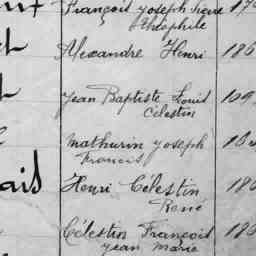 François Joseph Pierre 17
Théophile
Alexandre Henri 186
Jean Baptiste Louis 109
Célestin
Mathurin Joseph 18
Francis
ais Henri Célestin 186
René
Célestin François 186
Jean Marie